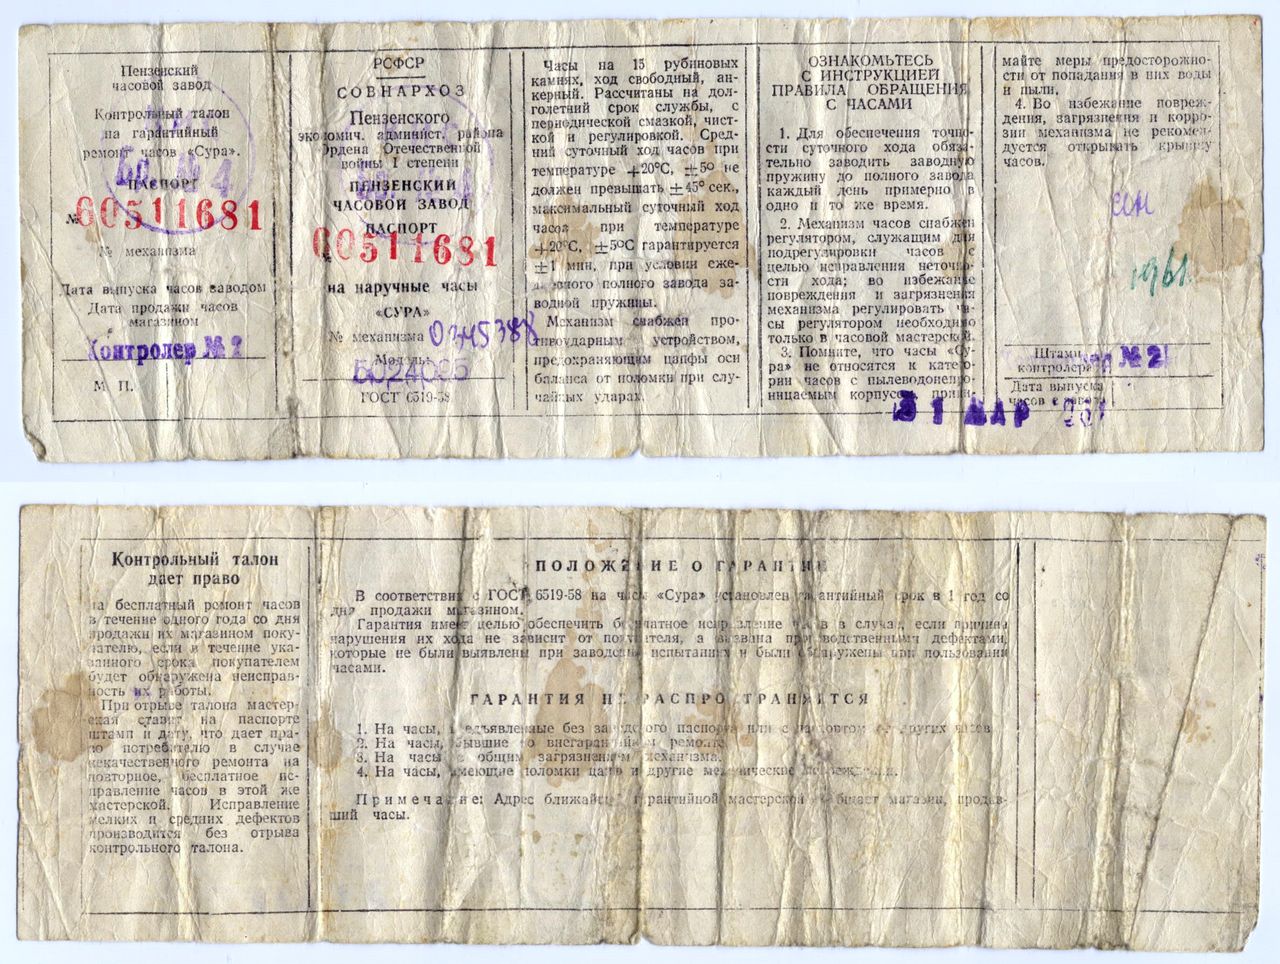 Пензенский
часовой завод
Контрольный талон
на гарантийный
ремонт часов «Сура».
ПАСПОРТ
№ 60511681
№ механизма
Дата выпуска часов заводом
Дата продажи часов
магазином
Контролер № 2
М. П.
РСФСР
СОВНАРХОЗ
Пензенского
экономич. админист. района
Ордена Отечественной
войны I степени
ПЕНЗЕНСКИЙ
ЧАСОВОЙ ЗАВОД
ПАСПОРТ
60511681
на наручные часы
«СУРА»
№ механизма
Модуль
ГОСТ 6519-58
Часы на 15 рубиновых
камнях, ход свободный, ан-
керный. Рассчитаны на дол-
голетний срок службы, с
периодической смазкой, чист-
кой и регулировкой. Сред-
ний суточный ход часов при
температуре +20°С, ±5° не
должен превышать ±45° сек.,
максимальный суточный ход
часов при температуре
+20°С, ±5°С гарантируется
±1 мин, при условии еже-
дневного полного завода за-
водной пружины.
Механизм снабжен про-
тивоударным устройством,
предохраняющим цапфы оси
баланса от поломки при слу-
чайных ударах.
ОЗНАКОМЬТЕСЬ
С ИНСТРУКЦИЕЙ
ПРАВИЛА ОБРАЩЕНИЯ
С ЧАСАМИ
1. Для обеспечения точно-
сти суточного хода обяза-
тельно заводить заводную
пружину до полного завода
каждый день примерно в
одно и то же время.
2. Механизм часов снабжен
регулятором, служащим для
подрегулировки часов с
целью исправления неточно-
сти хода; во избежание
повреждения и загрязнения
механизма регулировать ча-
сы регулятором необходимо
только в часовой мастерской.
3. Помните, что часы «Су-
ра» не относятся к кате-
рии часов с пылеводонепро-
ницаемым корпусом, прини-
майте меры предосторожно-
сти от попадания в них воды
и пыли.
4. Во избежание повреж-
дения, загрязнения и корро-
зии механизма не рекомен-
дуется открывать крышку
часов.
1961
Штамп
контролера № 2
Дата выпуска
часов с завода
31 МАР
Контрольный талон
дает право
на бесплатный ремонт часов
в течение одного года со дня
продажи их магазином поку-
пателю, если в течение ука-
занного срока покупателем
будет обнаружена неисправ-
ность их работы.
При отрыве талона мастер-
ская ставит на паспорте
штамп и дату, что дает пра-
во потребителю в случае
некачественного ремонта на
повторное, бесплатное ис-
правление часов в этой же
мастерской. Исправление
мелких и средних дефектов
производится без отрыва
контрольного талона.
ПОЛОЖЕНИЕ О ГАРАНТИИ
В соответствии с ГОСТ 6519-58 на часы «Сура» установлен гарантийный срок в 1 год со
дня продажи магазином.
Гарантия имеет целью обеспечить бесплатное исправление часов в случае, если причина
нарушения их хода не зависит от покупателя, а вызвана производственными дефектами,
которые не были выявлены при заводском испытании и были обнаружены при пользовании
часами.
ГАРАНТИЯ НЕ РАСПРОСТРАНЯЕТСЯ
1. На часы, предъявленные без заводского паспорта или с паспортом от других часов.
2. На часы, бывшие во внегарантийном ремонте.
3. На часы с общим загрязнением механизма.
4. На часы, имеющие поломки цапф и другие механические повреждения.
Примечание: Адрес ближайшей гарантийной мастерской сообщает магазин, продав-
ший часы.